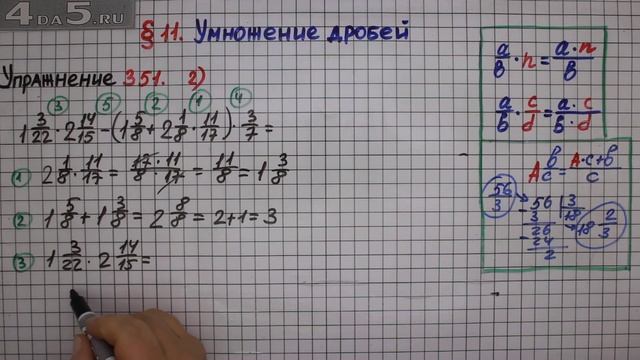 4DA5.RU
§ 11. Умножение дробей
Упражнение 351. 2)
③ ⑤ ② ① ④
1 3/22 · 2 14/15 - (1 5/8 + 2 1/8 · 11/17) · 3/7 =
① 2 1/8 · 11/17 = 17·11/8·17 = 11/8 = 1 3/8
② 1 5/8 + 1 3/8 = 2 8/8 = 2+1=3
③ 1 3/22 · 2 14/15 =
a/b · n = a·n/b
a/b · c/d = a·c/b·d
A b/c = A·c+b/c
56/3
56 | 3
- 3 18
26 → 18 2/3
- 24
2